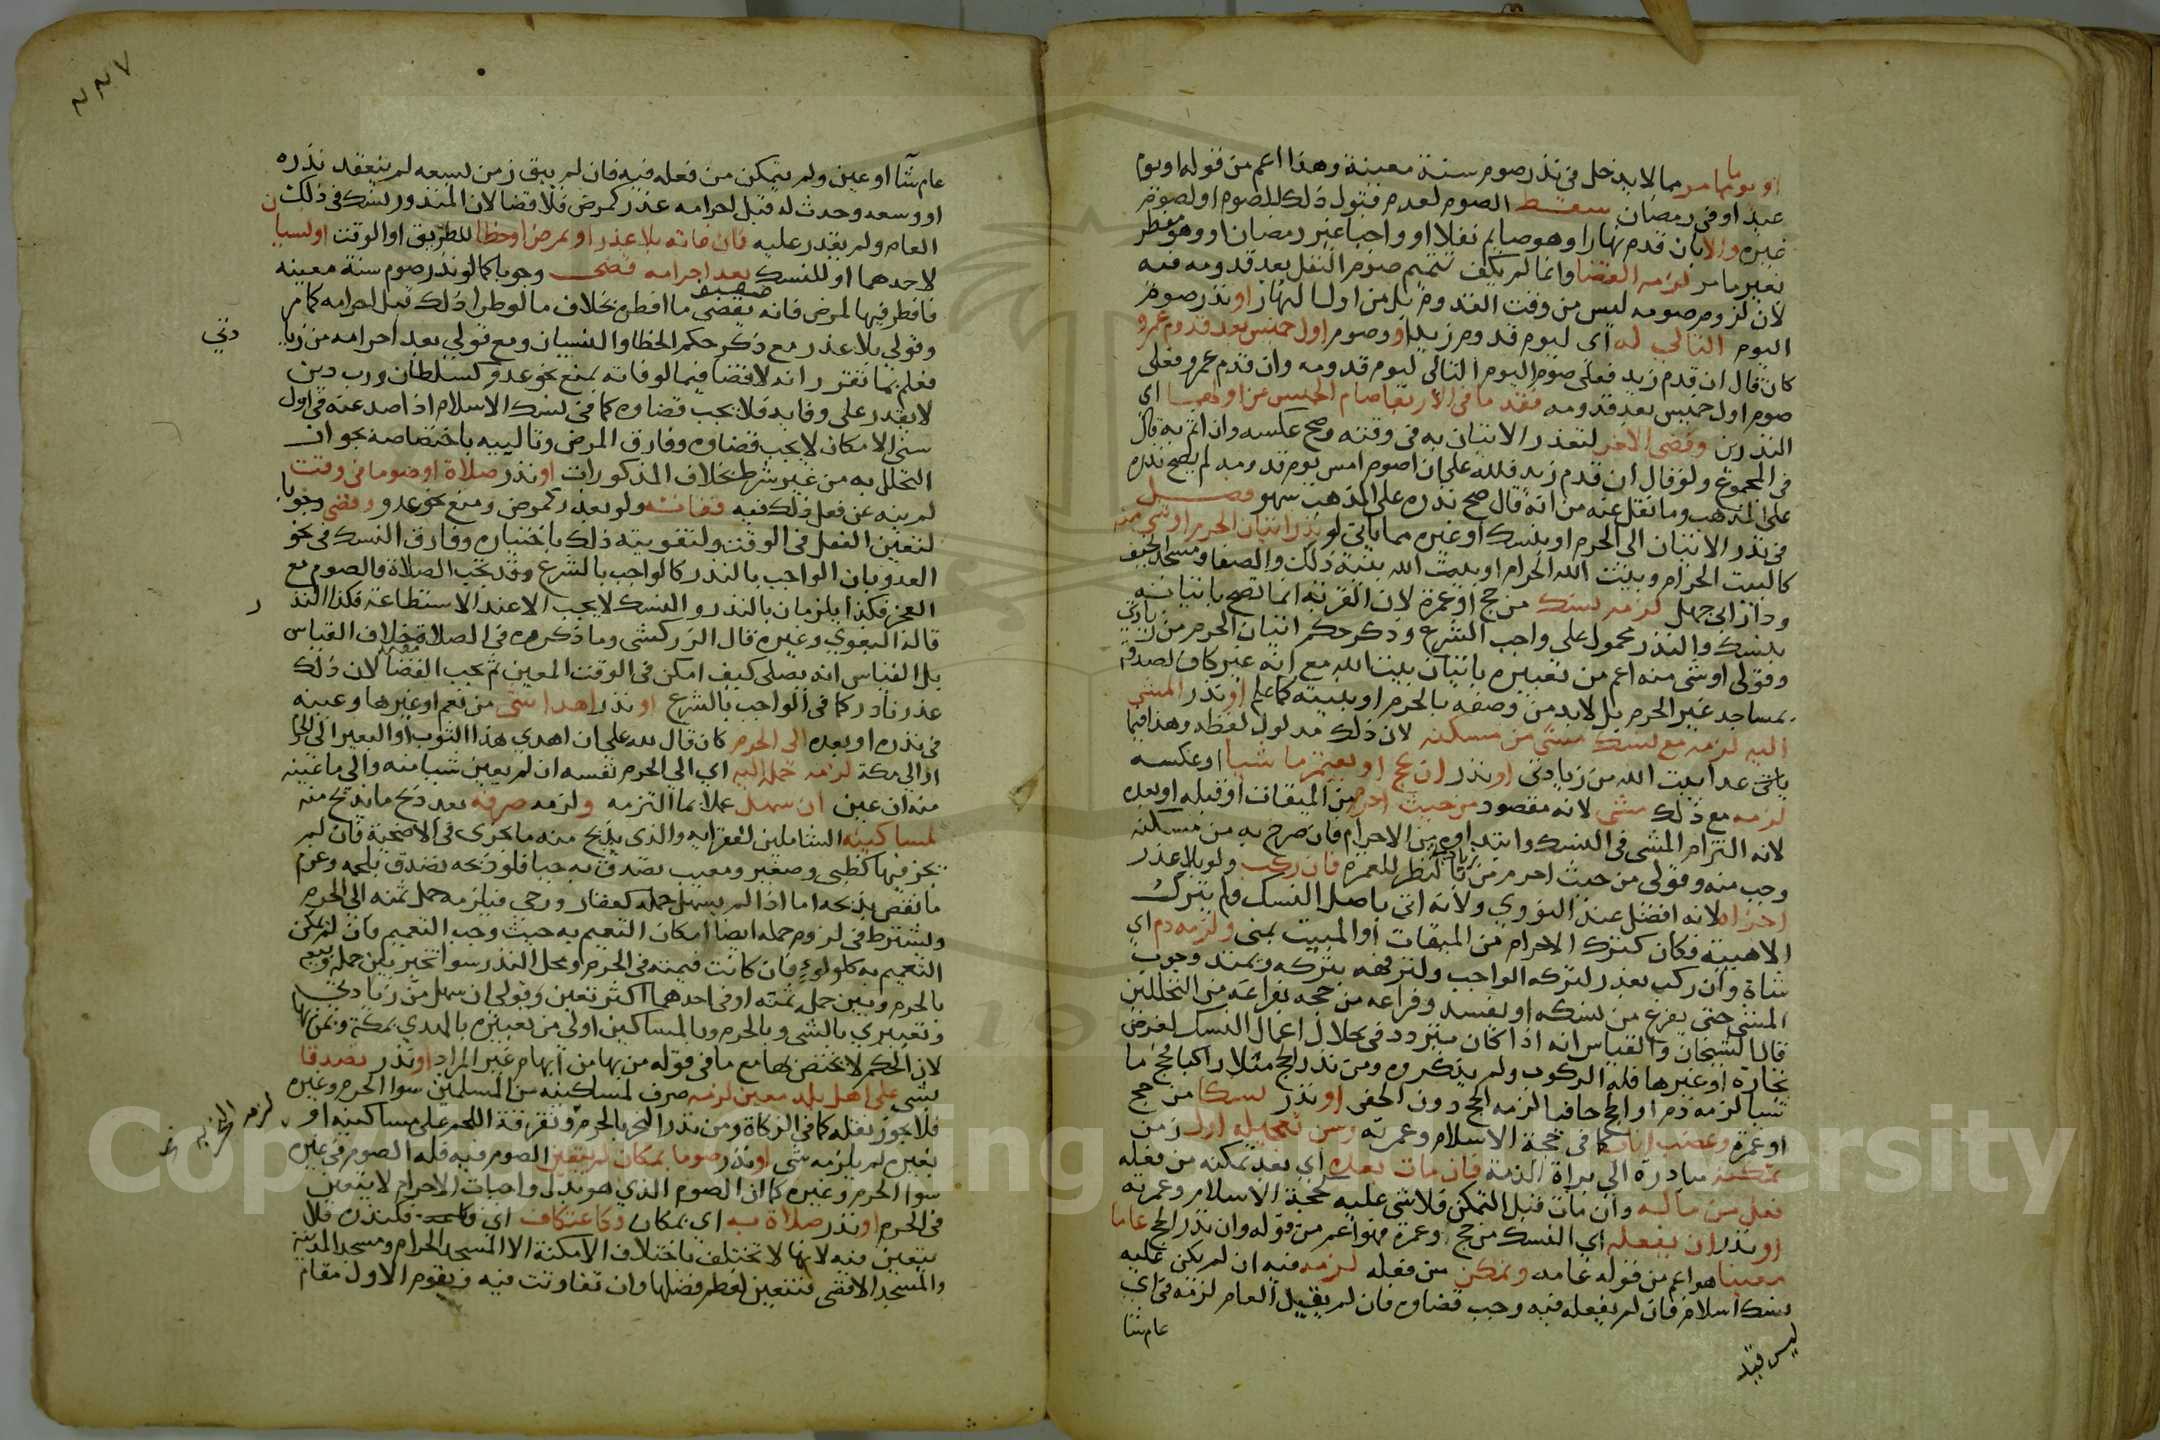 او يوما مما مر مما لا يدخل في نذر صوم سنة معينة وهذا اعم من قوله او يوم
عيد او في رمضان سقط الصوم لعدم قبول ذلك للصوم او لصوم
غيره والا بان قدم نهارا وهو صايم نفلا او واجبا غير رمضان او وهو مفطر
بغير ما مر لزمه القضا وانما لم يكف تتميم صوم النفل بعد قدومه فيه
لان لزوم صومه ليس من وقت القدوم بل من اول النهار او نذر صوم
اليوم التالي له اي ليوم قدوم زيد او وصوم اول خميس بعد قدوم عمرو
كان قال ان قدم زيد فعلي صوم اليوم التالي ليوم قدومه وان قدم عمرو فعلي
صوم اول خميس بعد قدومه فقدما في الاربعا صام الخميس عن اولهما اي
النذرين وقضى الاخر لتعذر الاتيان به في وقته وصح عكسه وان اثم به قال
في المجموع ولو قال ان قدم زيد فلله علي ان اصوم امس يوم قدومه لم يصح نذره
على المذهب وما نقل عنه من انه قال صح نذره على المذهب سهو فصل
في نذر الاتيان الى الحرم او بنسك او غيره مما ياتي لو نذر اتيان الحرم او شي منه
كالبيت الحرام وبيت الله الحرام او بيت الله بنية ذلك والصفا ومسجد الخيف
ودار ابي جهل لزمه نسك من حج او عمرة لان القربة انما تصح باتيانه
بنسك والنذر محمول على واجب الشرع وذكر حكم اتيان الحرم من زيادتي
وقولي او شي منه اعم من تعبيره باتيان بيت الله مع انه غير كاف لصدقه
بمساجد غير الحرم بل لا بد من وصفه بالحرم او بنيته كما علم او نذر المشي
اليه لزمه مع نسك مشي من مسكنه لان ذلك مدلول لفظه وهذا فيما
عدا بيت الله من زيادتي او نذر ان يحج او يعتمر ماشيا او عكسه
لزمه مع ذلك مشي لانه مقصود من حيث احرم من الميقات او قبله او بعده
لانه التزام المشي في النسك وابتداوه من الاحرام فان صرح به من مسكنه
وجب منه وقولي من حيث احرم من زيادتي بالنظر للعمرة فان ركب ولو بلا عذر
اجزاه لانه افضل عند النووي ولانه اتى باصل النسك ولم يترك
الا هيبة فكان كترك الاحرام من الميقات او المبيت بمنى ولزمه دم اي
شاة وان ركب بعذر لتركه الواجب ولترفهه بتركه ويمتد وجوب
المشي حتى يفرغ من نسكه او يفسد وفراغه من حجه بفراغه من التحللين
قال الشيخان والقياس انه اذا كان يتردد في خلال اعمال النسك لغرض
تجارة او غيرها فله الركوب ولم يذكروه ومن نذر الحج مثلا راكبا فحج ما
شيا لزمه دم او الحج حافيا لزمه الحج دون الحفى او نذر نسكا من حج
او عمرة وعضب اناب كما في حجة الاسلام وعمرته وسن تعجيله اول زمن
تمكنه مبادرة الى براة الذمة فان مات بعده اي بعد تمكنه من فعله
فعل من ماله وان مات قبل التمكن فلا شي عليه كحجة الاسلام وعمرته
او نذر ان يفعله اي النسك من حج او عمرة فهو اعم من قوله وان نذر الحج عاما
معينا هو اعم من قوله عامه وتمكن من فعله لزمه فيه ان لم يكن عليه
نسك اسلام فان لم يفعله فيه وجب قضاوه فان لم يقيد العام لزمه في اي
عام شا
ليس قيد
٢٢٧
عام شآ او عين ولم يتمكن من فعله فيه فان لم يبق زمن يسعه لم ينعقد نذره
او وسعه وحدث له قبل احرامه عذر كمرض فلا قضا لان المنذور نسك في ذلك
العام ولم يقدر عليه فان فاته بلا عذر او بمرض او خطا للطريق او الوقت او نسيان
لاحدهما او للنسك بعد احرامه قضى وجوبا كما لو نذر صوم سنة معينة
فافطر فيها لمرض فانه يقضي ما افطره بخلاف ما لو طرا ذلك قبل احرامه كما مر
وقولي بلا عذر مع ذكر حكم الخطا والنسيان ومع قولي بعد احرامه من زيا
دتي
فعلم بما تقرر انه لا قضا فيما لو فاته بمنع نحو عدو كسلطان ورب دين
لا يقدر على وفايه فلا يجب قضاوه كما في نسك الاسلام اذا صد عنه في اول
سني الامكان لا يجب قضاوه وفارق المرض وتالييه باختصاصه بجواز
التحلل به من غير شرط بخلاف المذكورات او نذر صلاة او صوما في وقت
لم ينه عن فعل ذلك فيه ففاته ولو بعذر كمرض ومنع نحو عدو وقضى وجوبا
لتعين الفعل في الوقت ولتفويته ذلك باختياره وفارق النسك في نحو
العدو بان الواجب بالنذر كالواجب بالشرع وقد تجب الصلاة والصوم مع
العجز فكذا يلزمان بالنذر والنسك لا يجب الا عند الاستطاعة فكذا النذ
ر
قاله البغوي وغيره قال الزركشي وما ذكروه في الصلاة خلاف القياس
بل القياس انه يصلي كيف امكن في الوقت المعين ثم يجب القضا لان ذلك
عذر نادر كما في الواجب بالشرع او نذر اهدا شي من نعم او غيرها وعينه
في نذره او بعده الى الحرم كان قال لله علي ان اهدي هذا الثوب او البعير الى الحرم
او الى مكة لزمه حمله اليه اي الى الحرم نفسه ان لم يعين شيا منه والى ما عينه
منه ان عين ان سهل عملا بما التزمه ولزمه صرفه بعد ذبح ما يذبح منه
لمساكينه الشاملين لفقرايه والذي يذبح منه ما يجزي في الاضحية فان لم
يجز فيها كظبي وصغير ومعيب تصدق به حيا فلو ذبحه تصدق بلحمه وغرم
ما نقص بذبحه اما اذا لم يسهل حمله كعقار ورحى فيلزمه حمل ثمنه الى الحرم
ويشترط في لزوم حمله ايضا امكان التعميم به حيث وجب التعميم فان لم يمكن
التعميم به كلولو فان كانت قيمته في الحرم ومحل النذر سوا تخير بين حمله وبيعه
بالحرم وبين حمل ثمنه او في احدهما اكثر تعين وقولي ان سهل من زيادتي
وتعبيري بالشي وبالحرم وبالمساكين اولى من تعبيره بالهدي بمكة وبمن بها
لان الحكم لا يختص بها مع ما في قوله من بها من ايهام غير المراد او نذر تصدقا
بشي على اهل بلد معين لزمه صرف لمساكينه من المسلمين سوا الحرم وغيره
فلا يجوز نقله كما في الزكاة ومن نذر النحر بالحرم وتفرقة اللحم على مساكينه او
لزمه النحر به
بغيره لم يلزمه شي او نذر صوما بمكان لم يتعين الصوم فيه فله الصوم في غيره
سوا الحرم وغيره كما ان الصوم الذي هو بدل واجبات الاحرام لا يتعين
في الحرم او نذر صلاة به اي بمكان وكاعتكاف اي فكنذره فلا
يتعين فيه لانها لا تختلف باختلاف الامكنة الا المسجد الحرام ومسجد المدينة
والمسجد الاقصى فتتعين لعظم فضلها وان تفاوتت فيه ويقوم الاول مقام